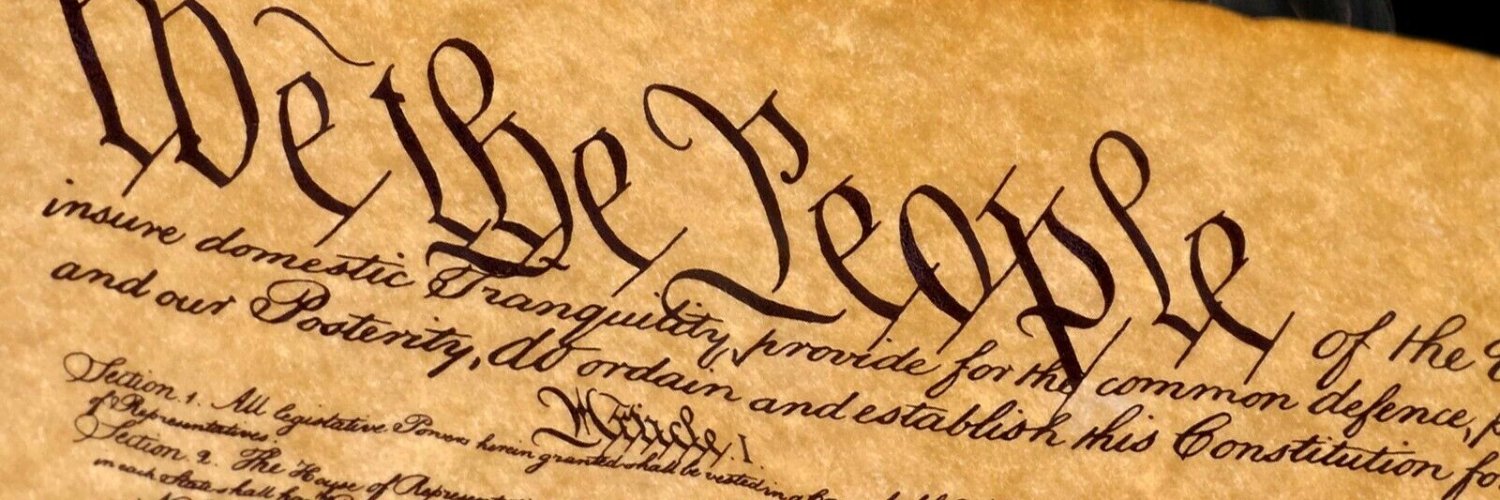 We the People of the
insure domestic Tranquility, provide for the common defence,
and our Posterity, do ordain and establish this Constitution fo
Article. I.
Section. 1. All legislative Powers herein granted shall be vested in a
of Representatives.
Section. 2. The House of Represent
in each State shall ha